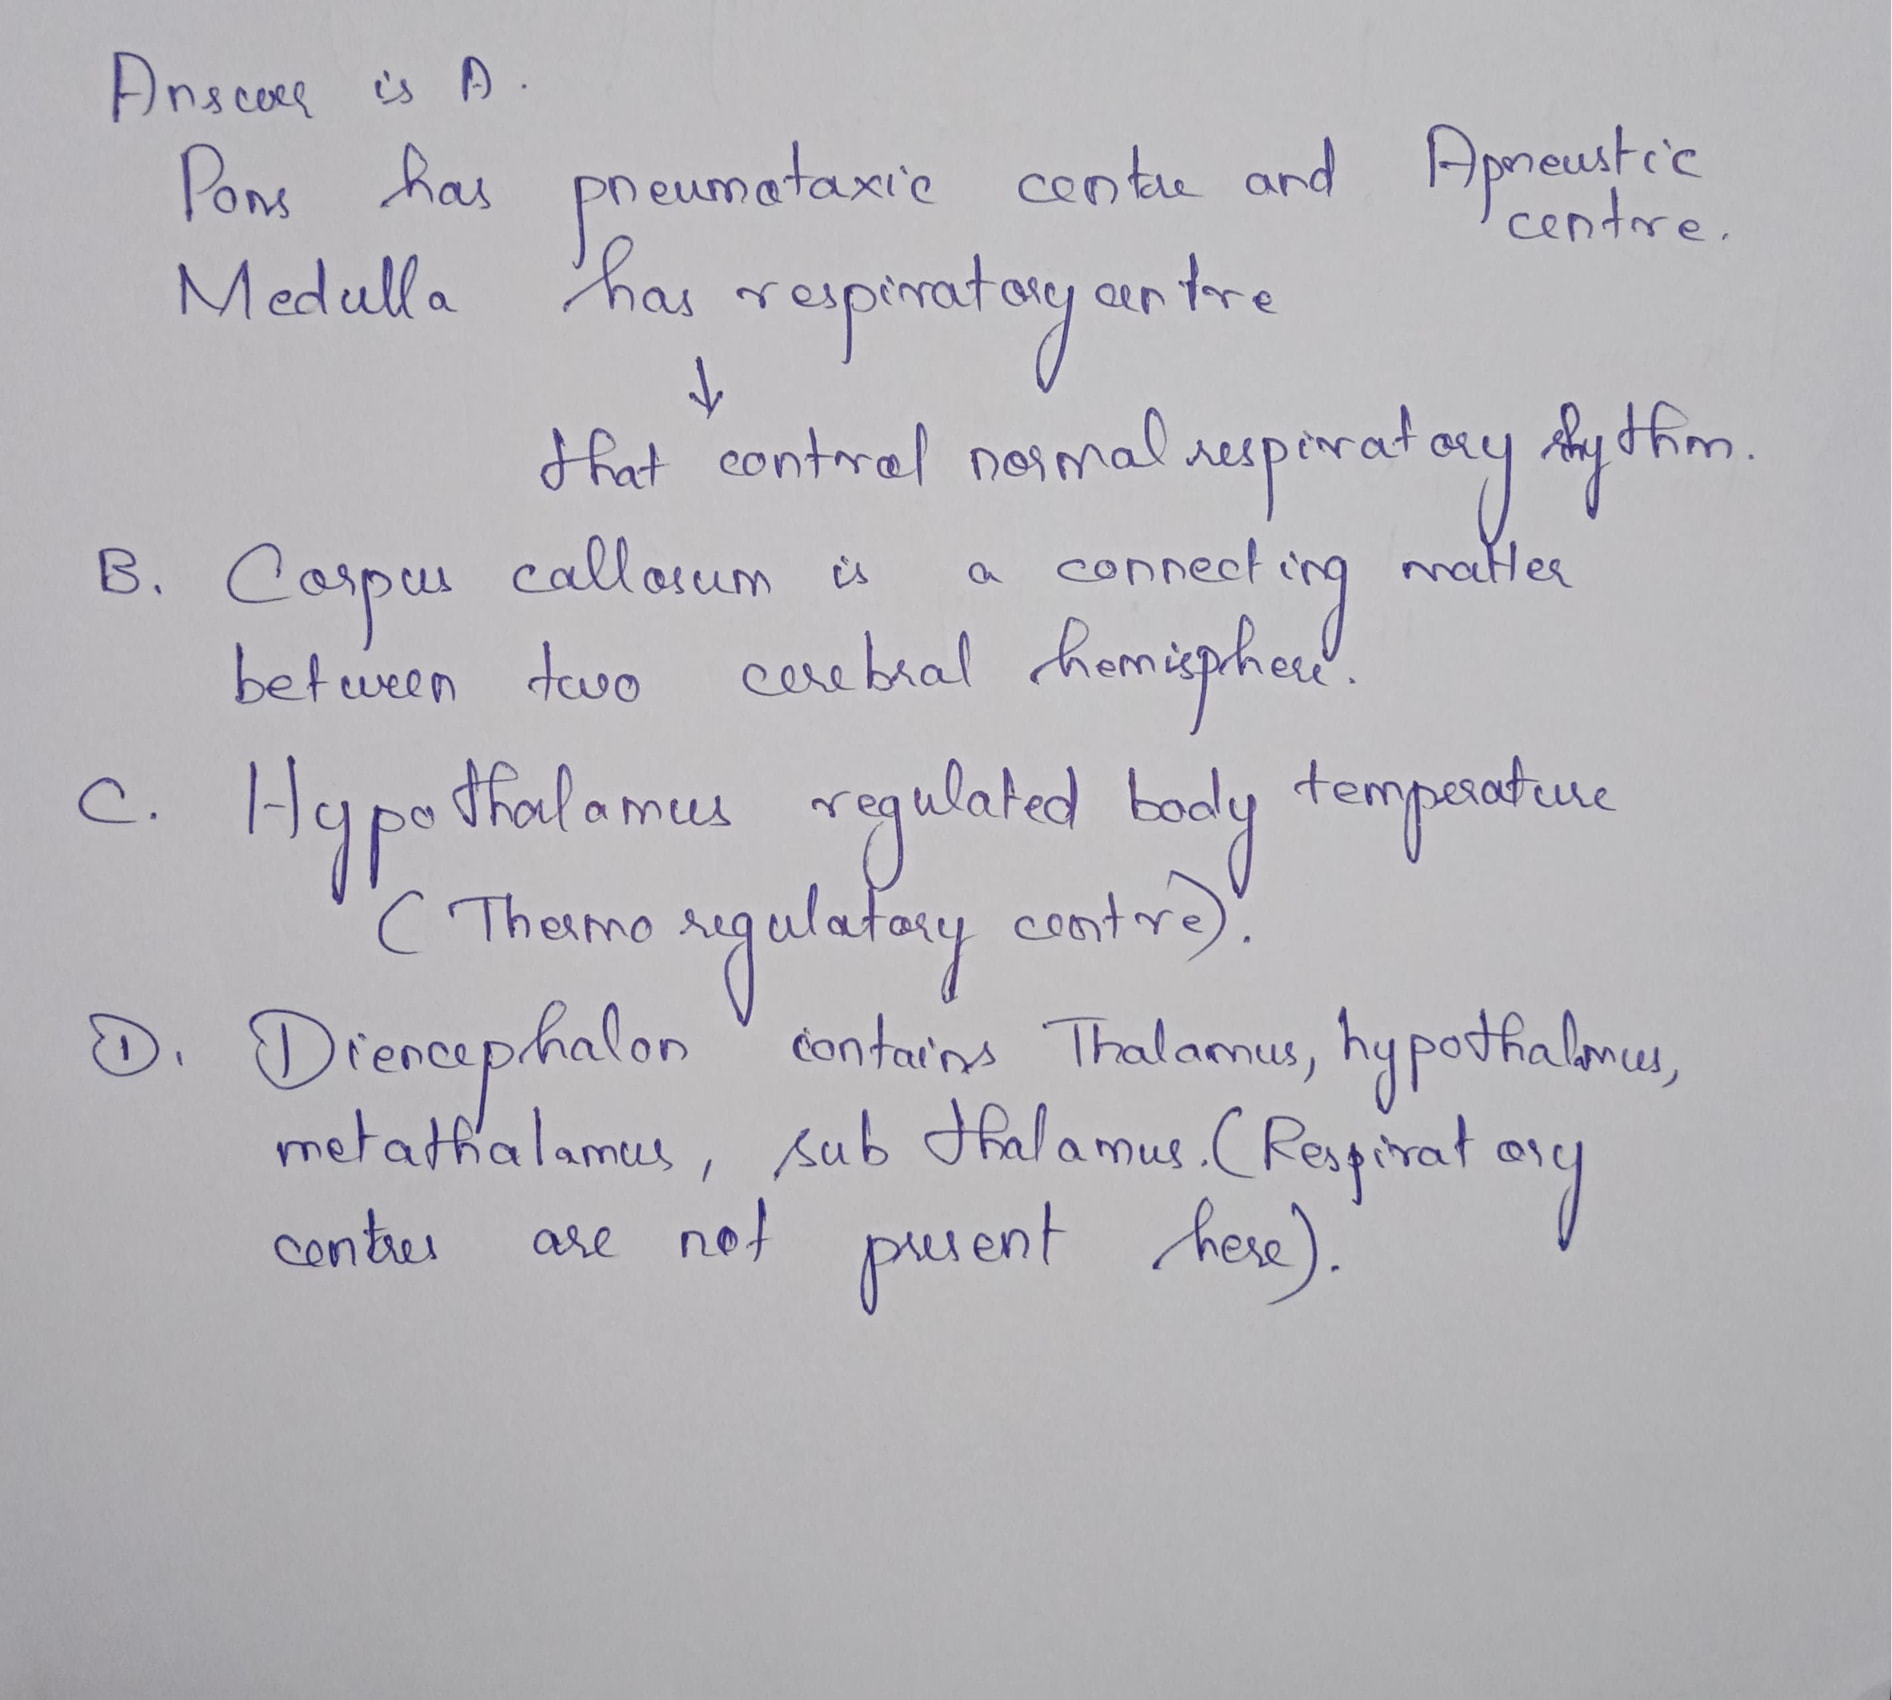 Answer is A.
Pons has pneumotaxic centre and Apneustic centre.
Medulla has respiratory centre
↓
that control normal respiratory rythm.
B. Corpus callosum is a connecting matter
between two cerebral hemisphere.
C. Hypothalamus regulated body temperature
(Thermo regulatory centre).
D. Diencephalon contains Thalamus, hypothalamus,
metathalamus, sub thalamus. (Respiratory
centres are not present here).